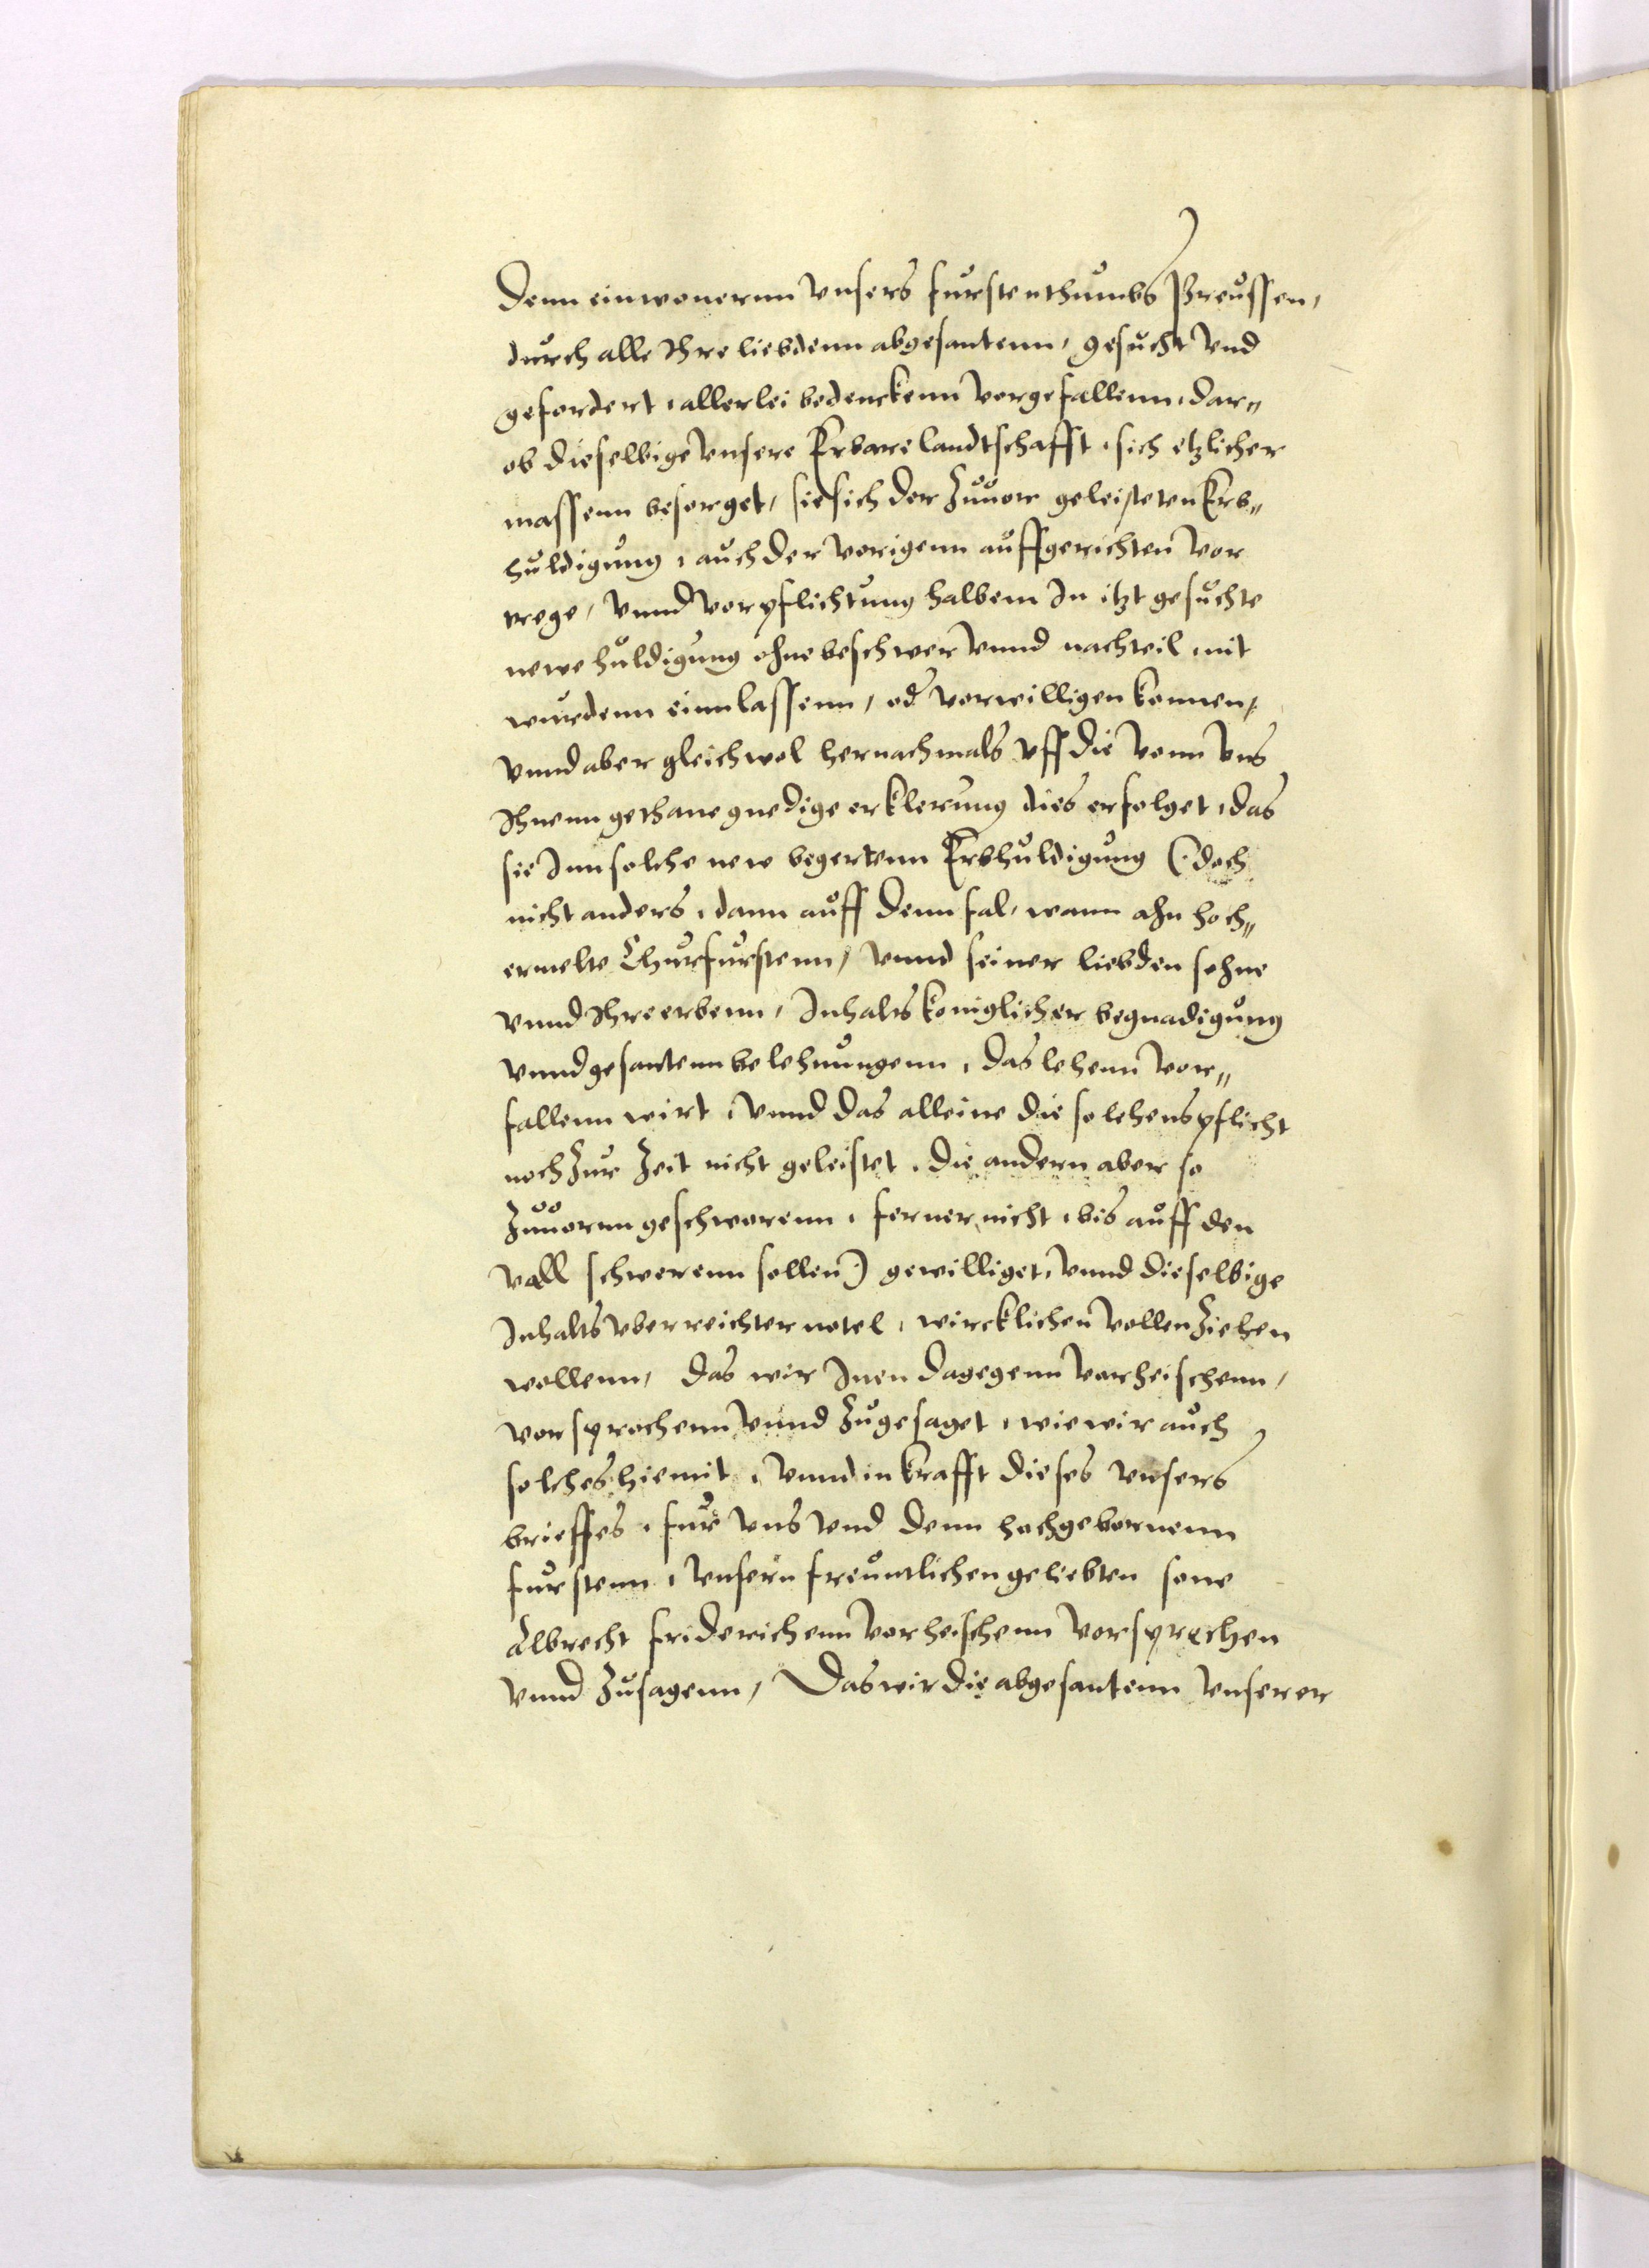 Denn einwonernn vnsers furstenthumbs Preussen,
durch alle Ihre liebdenn abgesantenn, gesucht vnd
gefordert, allerlei bedenckenn vorgefallenn, dar=
ob dieselbige vnsere Erbare landtschafft, sich etzlicher
massenn besorget, sie sich der zuuor geleisteten Erb=
huldigung, auch der vorigenn auffgerichten vor
trege, vnnd vorpflichtung halbenn In itzt gesuchte
newe huldigung ohne beschwer vnnd nachteil nit
wurdenn einnlassenn, od vorwilligen konnen,
vnnd aber gleichwol hernachmals vff die vonn vns
Ihnenn gethane gnedige erklerung dies erfolget, das
sie Inn solche new begertenn Erbhuldigung (: doch
nicht anders, dann auff denn fal, wann ahn hoch=
ermelte Churfurstenn, vnnd seiner liebden sohne
vnnd Ihre erbenn, Inhalts koniglicher begnadigung
vnnd gesantenn belehnungenn, das lehenn vor=
fallenn wirt, vnnd das alleine die so lehenspflicht
noch zur Zeit nicht geleistet, die andern aber so
zuuornn geschworenn, ferner nicht, bis auff den
vall schwerenn sollen :) gewilliget, vnnd dieselbige
Inhalts vberreichter notel, wircklichen vollenziehen
wollenn, das wir Inen dagegenn vorheischenn,
vorsprochenn vnnd zugesaget, wie wir auch
solches hiemit, vnnd in krafft dieses vnsers
brieffes, fur vns vnd denn hochgebornenn
furstenn, vnsern freuntlichen geliebten sone
Albrecht friderichenn vorheischenn vorsprechen
vnnd zusagenn, Das wir die abgesantenn vnserer